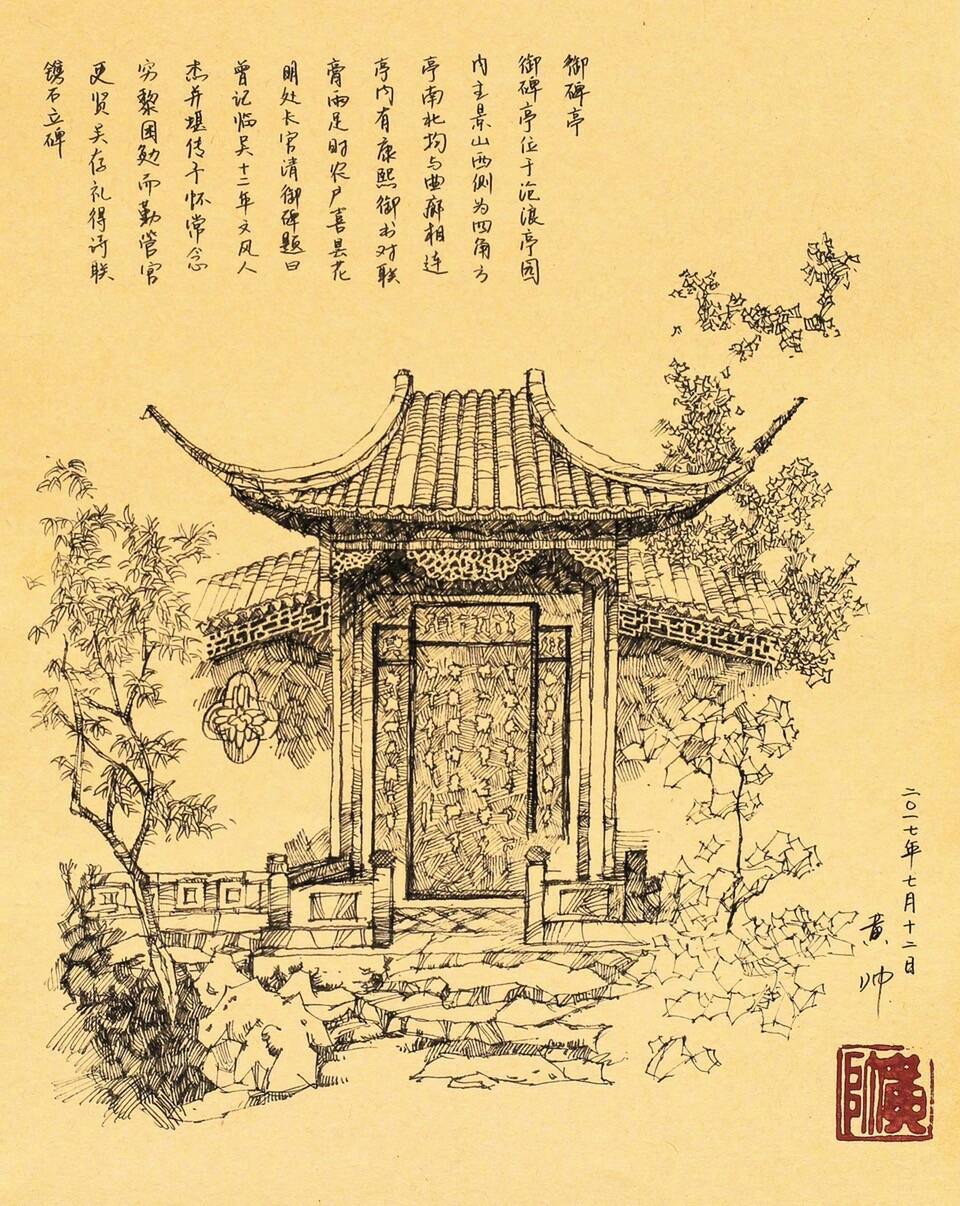 御碑亭
御碑亭位于沧浪亭园
内主景山西侧为四角方
亭南北均与曲廊相连
亭内有康熙御书对联
膏雨足时农户喜县花
明处长官清御碑题曰
曾记临吴十二年文风人
杰并堪传予怀常念
穷黎困勉而勤箴官
更贤吴存礼得诗联
镌石立碑
二〇一七年七月十二日
黄帅
黄帅